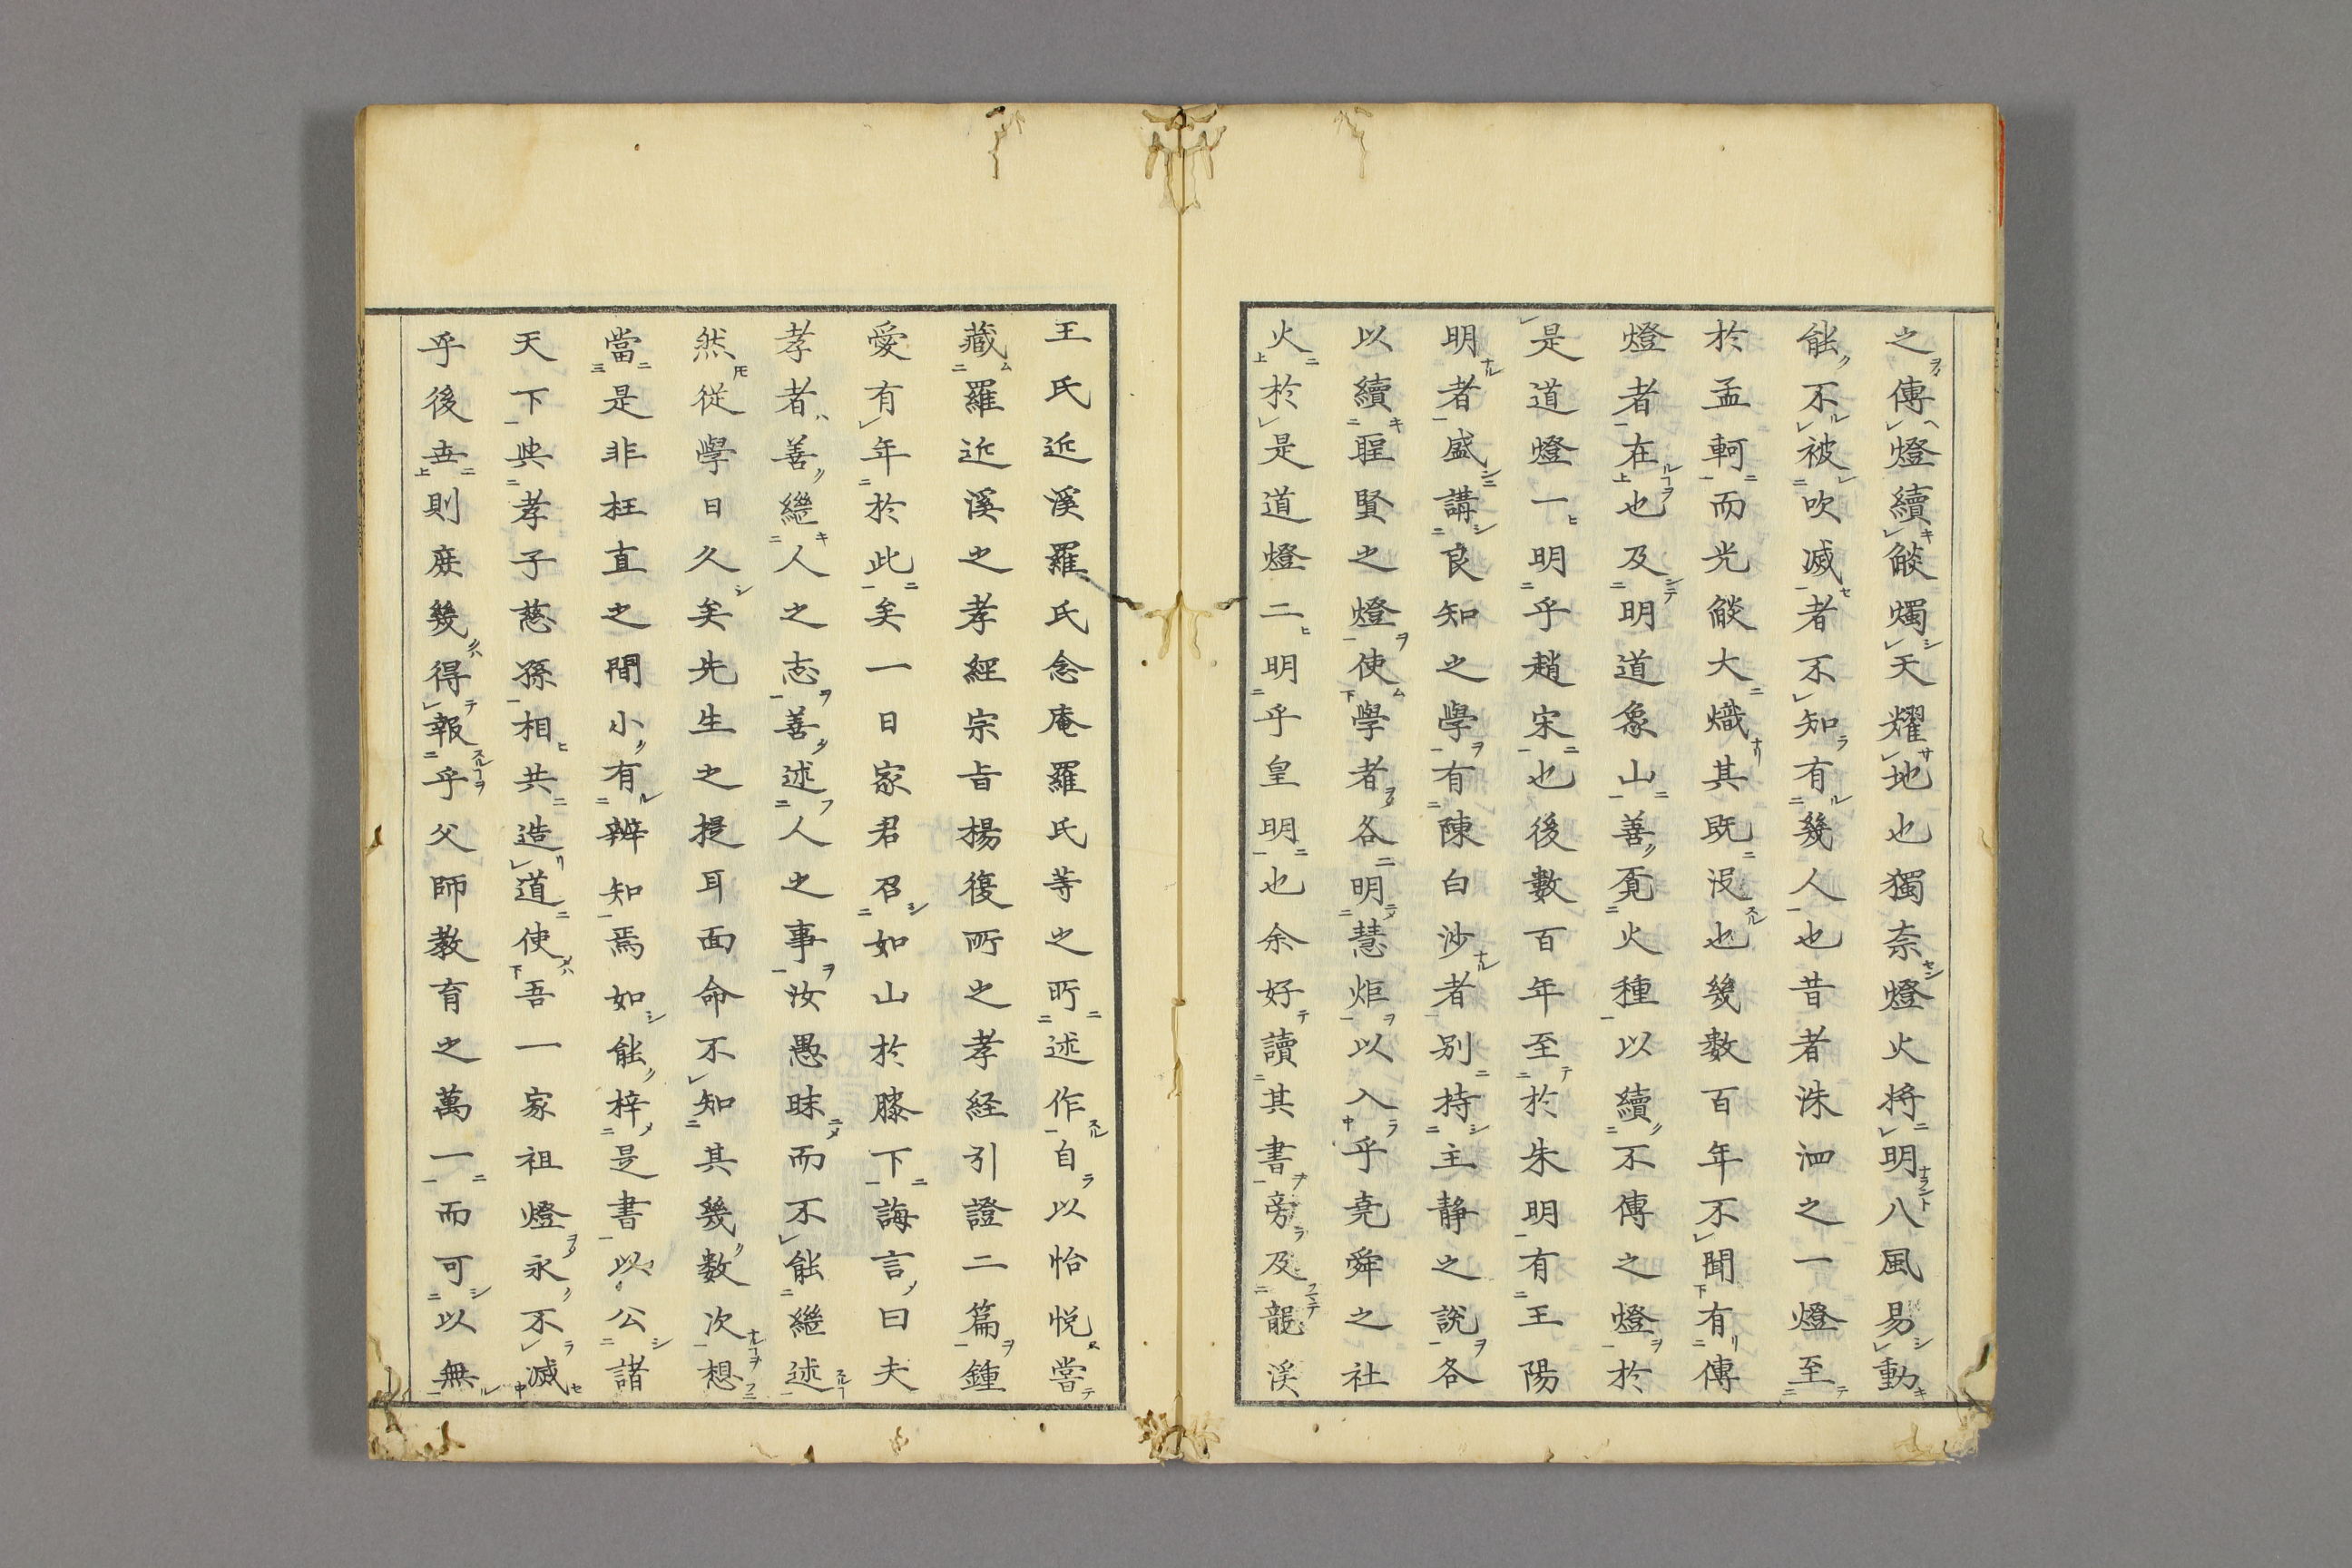 之傳燈續燄燭天耀地也獨奈燈火將明八風易動
能不被吹滅者不知有幾人也昔者洙泗之一燈至
於孟軻而光燄大熾其既沒也幾数百年不聞有傳
燈者在也及明道象山善覔火種以續不傳之燈於
是道燈一明乎趙宋也後數百年至於朱明有王陽
明者盛講良知之學有陳白沙者别持主静之說各
以續聖賢之燈使學者各明慧炬以入乎堯舜之社
火於是道燈二明乎皇明也余好讀其書旁及龍溪
王氏近溪羅氏念庵羅氏等之所述作自以怡悦嘗
藏羅近溪之孝經宗旨楊復所之孝経引證二篇鍾
愛有年於此矣一日家君召如山於膝下誨言曰夫
孝者善繼人之志善述人之事汝愚昧而不能繼述
然從學日久矣先生之提耳面命不知其幾数次想
當是非枉直之間小有辨知焉如能梓是書以公諸
天下典孝子慈孫相共造道使吾一家祖燈永不滅
乎後世則庶幾得報乎父師教育之萬一而可以無